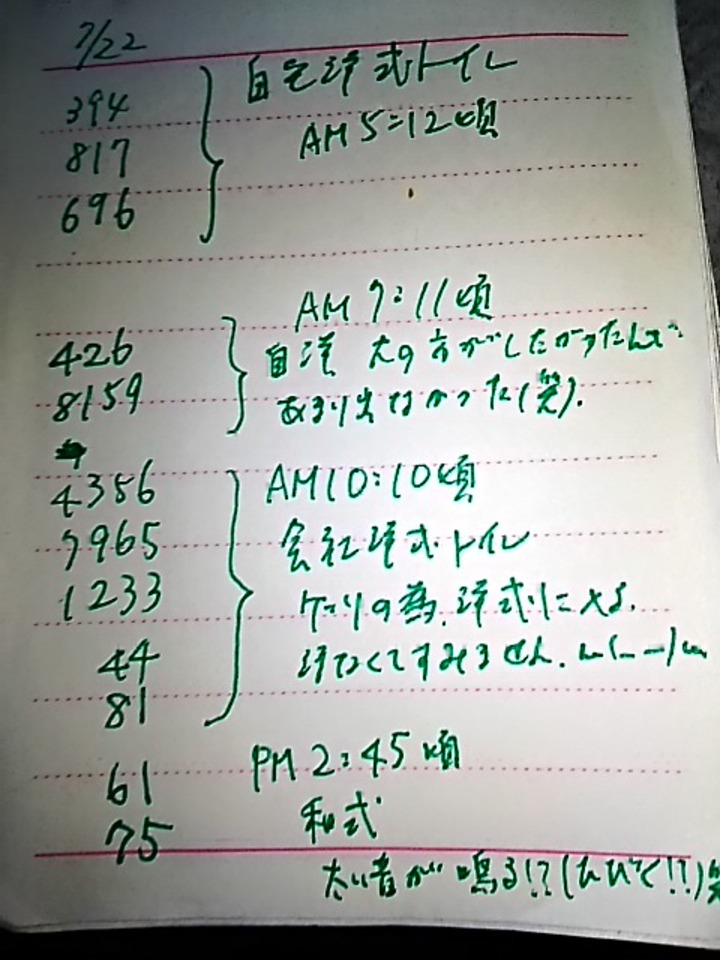 7/22
394
817
696
自宅洋式トイレ
AM5:12頃
AM7:11頃
426
8159
自洋 大の方がしたかったんで
あまり出なかった(笑).
4356
7965
1233
44
81
AM10:10頃
会社洋式トイレ
の為、洋式にする.
すみません. m(_ _)m
61
75
PM2:45頃
和式
太い音が鳴る!?(ひびく!!)笑